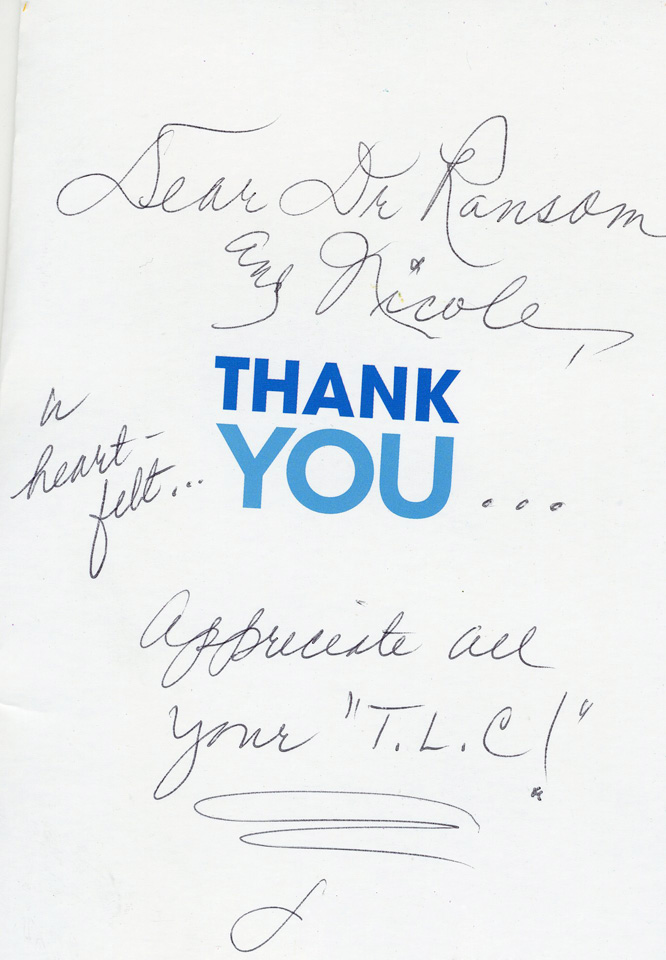 Dear Dr Ransom
and Nicole,
a
heart-
felt...
THANK
YOU...
Appreciate all
your "T.L.C!"